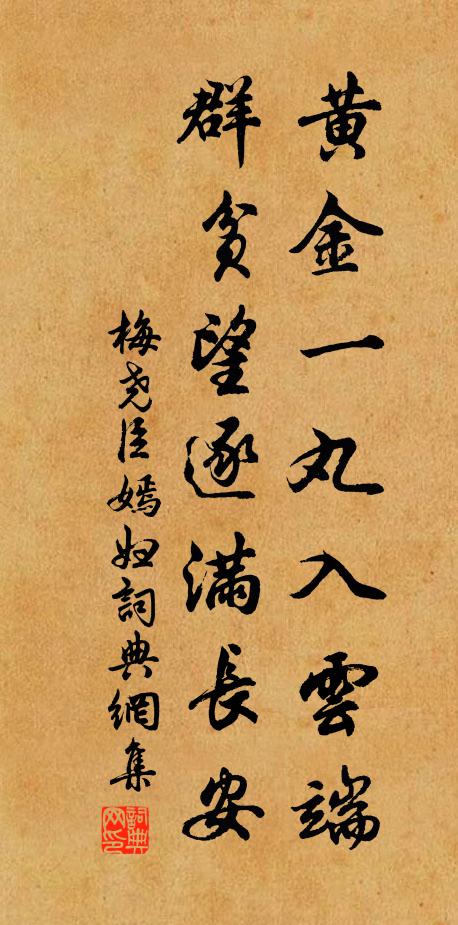 黄金一丸入雲端
群貧望逐滿長安
梅尧臣嫣妞詞典網集
詞典网印